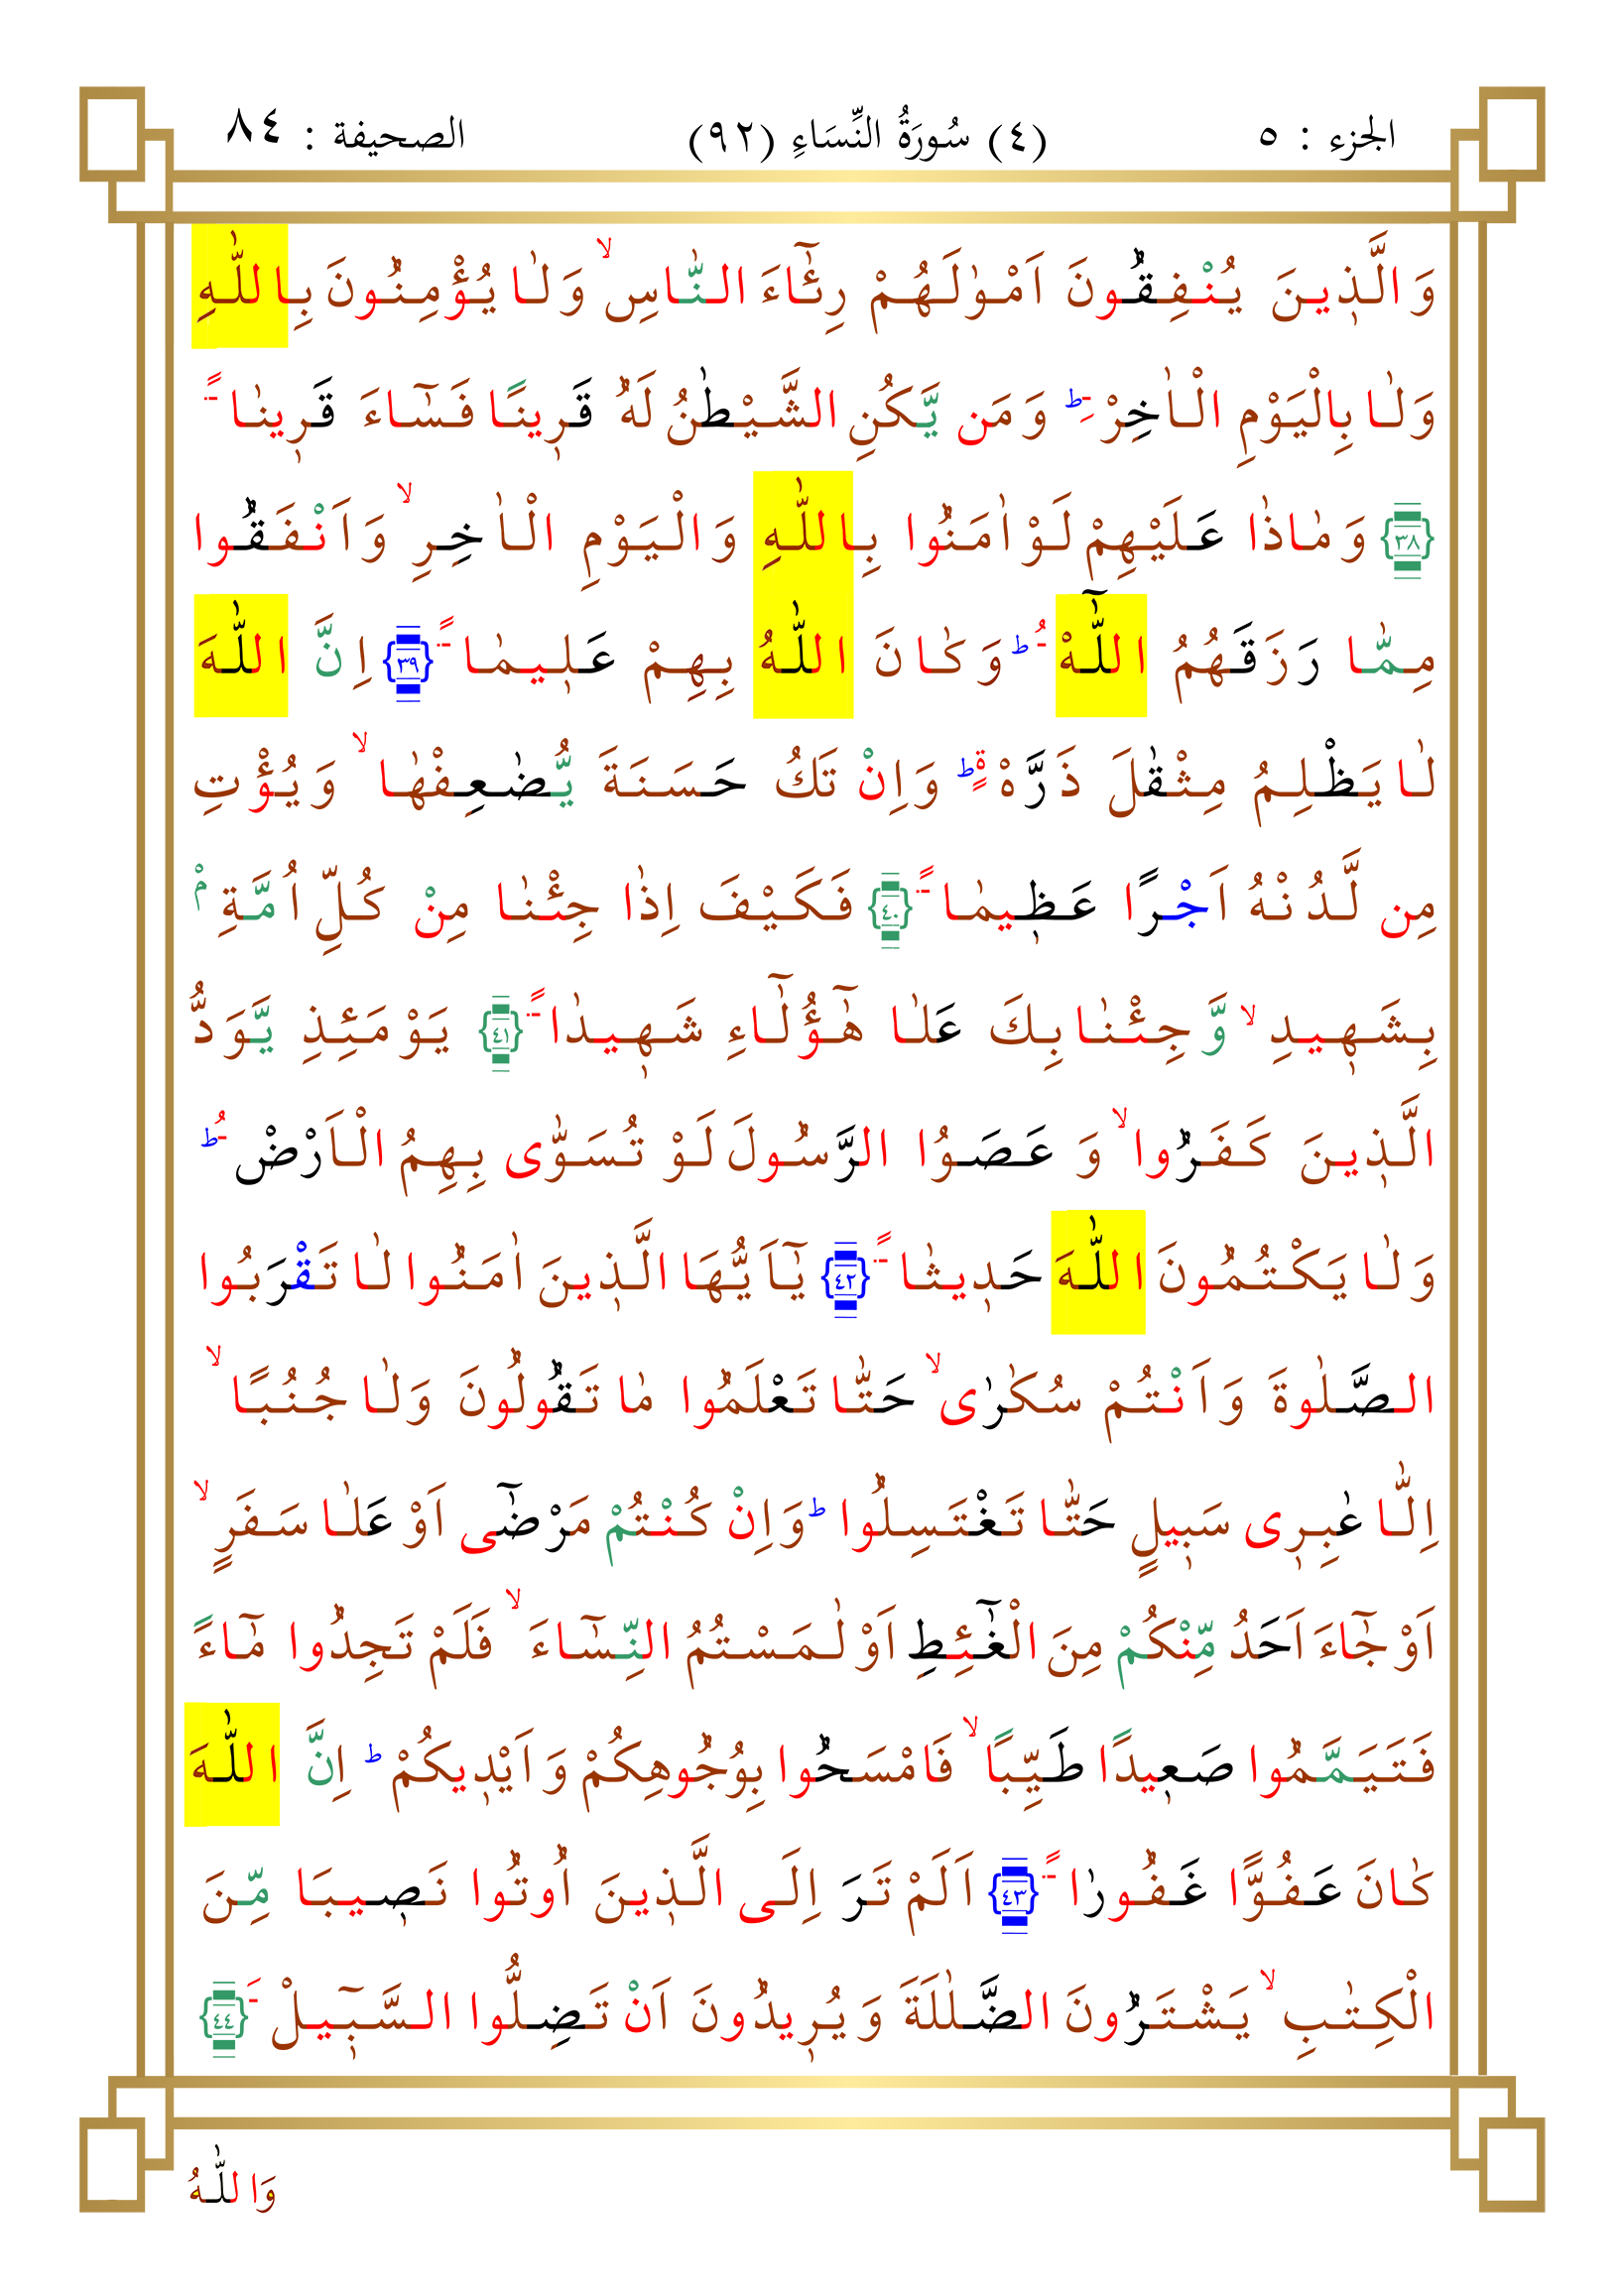 الجزء : ٥ (٤) سُورَةُ النِّسَاءِ (٩٢) الصحيفة : ٨٤
وَالَّذ۪ينَ يُنْفِقُونَ اَمْوٰلَهُمْ رِئَٓاءَ النَّاسِ ۙ وَلٰا يُؤْمِنُونَ بِاللّٰهِ
وَلٰا بِالْيَوْمِ الْاٰخِرْ ؕ وَمَن يَّكُنِ الشَّيْطٰنُ لَهُ قَر۪ينًا فَسَٓاءَ قَر۪ينٰاً
﴿٣٨﴾ وَمٰاذٰا عَلَيْهِمْ لَوْ اٰمَنُوا بِاللّٰهِ وَالْيَوْمِ الْاٰخِرِ ۙ وَاَنْفَقُوا
مِمّٰا رَزَقَهُمُ اللّٰهْ ؕ وَكٰانَ اللّٰهُ بِهِمْ عَل۪يمٰاً ﴿٣٩﴾ اِنَّ اللّٰهَ
لٰا يَظْلِمُ مِثْقٰلَ ذَرَّهْ ةٍ ؕ وَاِنْ تَكُ حَسَنَةَ يُّضٰعِفْهٰا ۙ وَيُؤْتِ
مِن لَّدُنْهُ اَجْرًا عَظ۪يمٰاً ﴿٤٠﴾ فَكَيْفَ اِذٰا جِئْنٰا مِنْ كُلِّ اُمَّةِ مْ
بِشَه۪يدِ ۙ وَّجِئْنٰا بِكَ عَلٰا هٰٓؤُلَٓاءِ شَه۪يدٰاً ﴿٤١﴾ يَوْمَئِذِ يَّوَدُّ
الَّذ۪ينَ كَفَرُوا ۙ وَعَصَوُا الرَّسُولَ لَوْ تُسَوّٰى بِهِمُ الْاَرْضْ ؕ
وَلٰا يَكْتُمُونَ اللّٰهَ حَد۪يثٰاً ﴿٤٢﴾ يٰٓاَيُّهَا الَّذ۪ينَ اٰمَنُوا لٰا تَقْرَبُوا
الصَّلٰوةَ وَاَنْتُمْ سُكٰرٰى ۙ حَتّٰا تَعْلَمُوا مٰا تَقُولُونَ وَلٰا جُنُبًا ۙ
اِلّٰا عٰبِر۪ى سَب۪يلٍ حَتّٰا تَغْتَسِلُوا ؕ وَاِنْ كُنْتُمْ مَرْضٰٓى اَوْ عَلٰا سَفَرٍ ۙ
اَوْ جَٓاءَ اَحَدُ مِّنْكُمْ مِنَ الْغَٓئِطِ اَوْ لٰمَسْتُمُ النِّسَٓاءَ ۙ فَلَمْ تَجِدُوا مَٓاءً
فَتَيَمَّمُوا صَع۪يدًا طَيِّبًا ۙ فَامْسَحُوا بِوُجُوهِكُمْ وَاَيْد۪يكُمْ ؕ اِنَّ اللّٰهَ
كٰانَ عَفُوًّا غَفُورٰاً ﴿٤٣﴾ اَلَمْ تَرَ اِلَى الَّذ۪ينَ اُوتُوا نَص۪يبَا مِّنَ
الْكِتٰبِ ۙ يَشْتَرُونَ الضَّلٰلَةَ وَيُر۪يدُونَ اَنْ تَضِلُّوا السَّب۪ٓيلْ ﴿٤٤﴾
وَاللّٰهُ